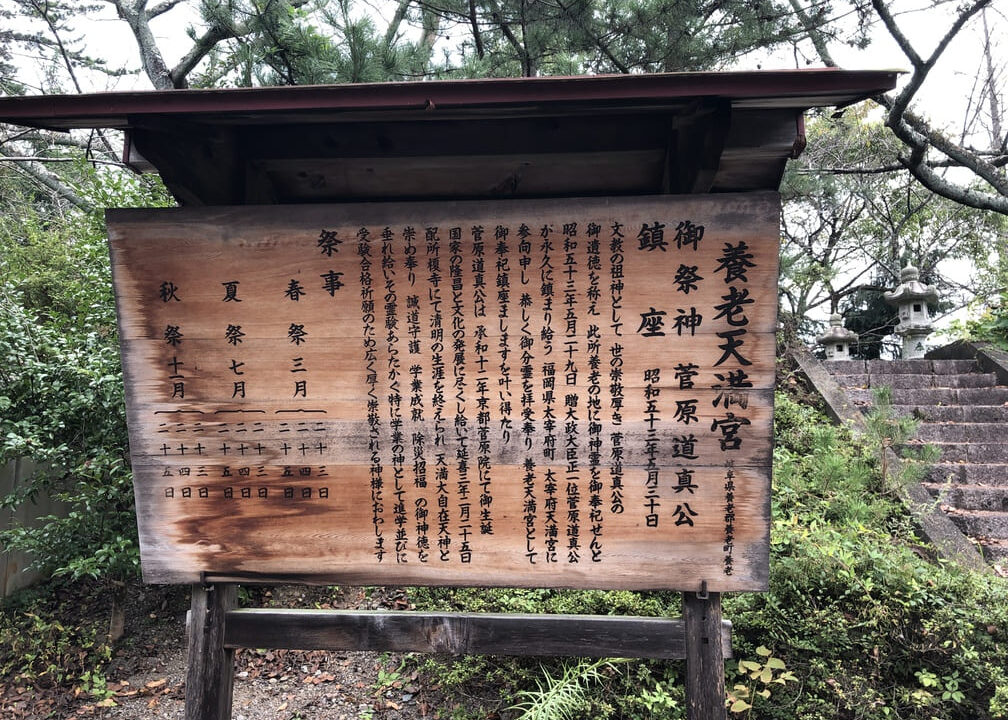 養老天満宮 岐阜県養老郡養老町養老
御祭神 菅原道真公
鎮座 昭和五十三年五月三十日
文教の祖神として 世の崇敬厚き 菅原道真公の
御遺徳を称え 此所養老の地に御神霊を御奉祀せんと
昭和五十三年五月二十九日 贈大政大臣正一位菅原道真公
が永久に鎮まり給う 福岡県太宰府町 太宰府天満宮に
参向申し 恭しく御分霊を拝受奉り 養老天満宮として
御奉祀鎮座ましますを叶い得たり
菅原道真公は 承和十二年京都菅原院にて御生誕
国家の隆昌と文化の発展に尽くし給いて延喜三年二月二十五日
配所榎寺にて清明の生涯を終えられ 天満大自在天神と
崇め奉り 誠道守護 学業成就 除災招福 の御神徳を
垂れ給いその霊験あらたかで特に学業の神として進学並びに
受験合格祈願のため広く厚く崇敬される神様におわします
祭事
春祭 三月 二十三日 二十四日 二十五日
夏祭 七月 二十三日 二十四日 二十五日
秋祭 十一月 二十三日 二十四日 二十五日